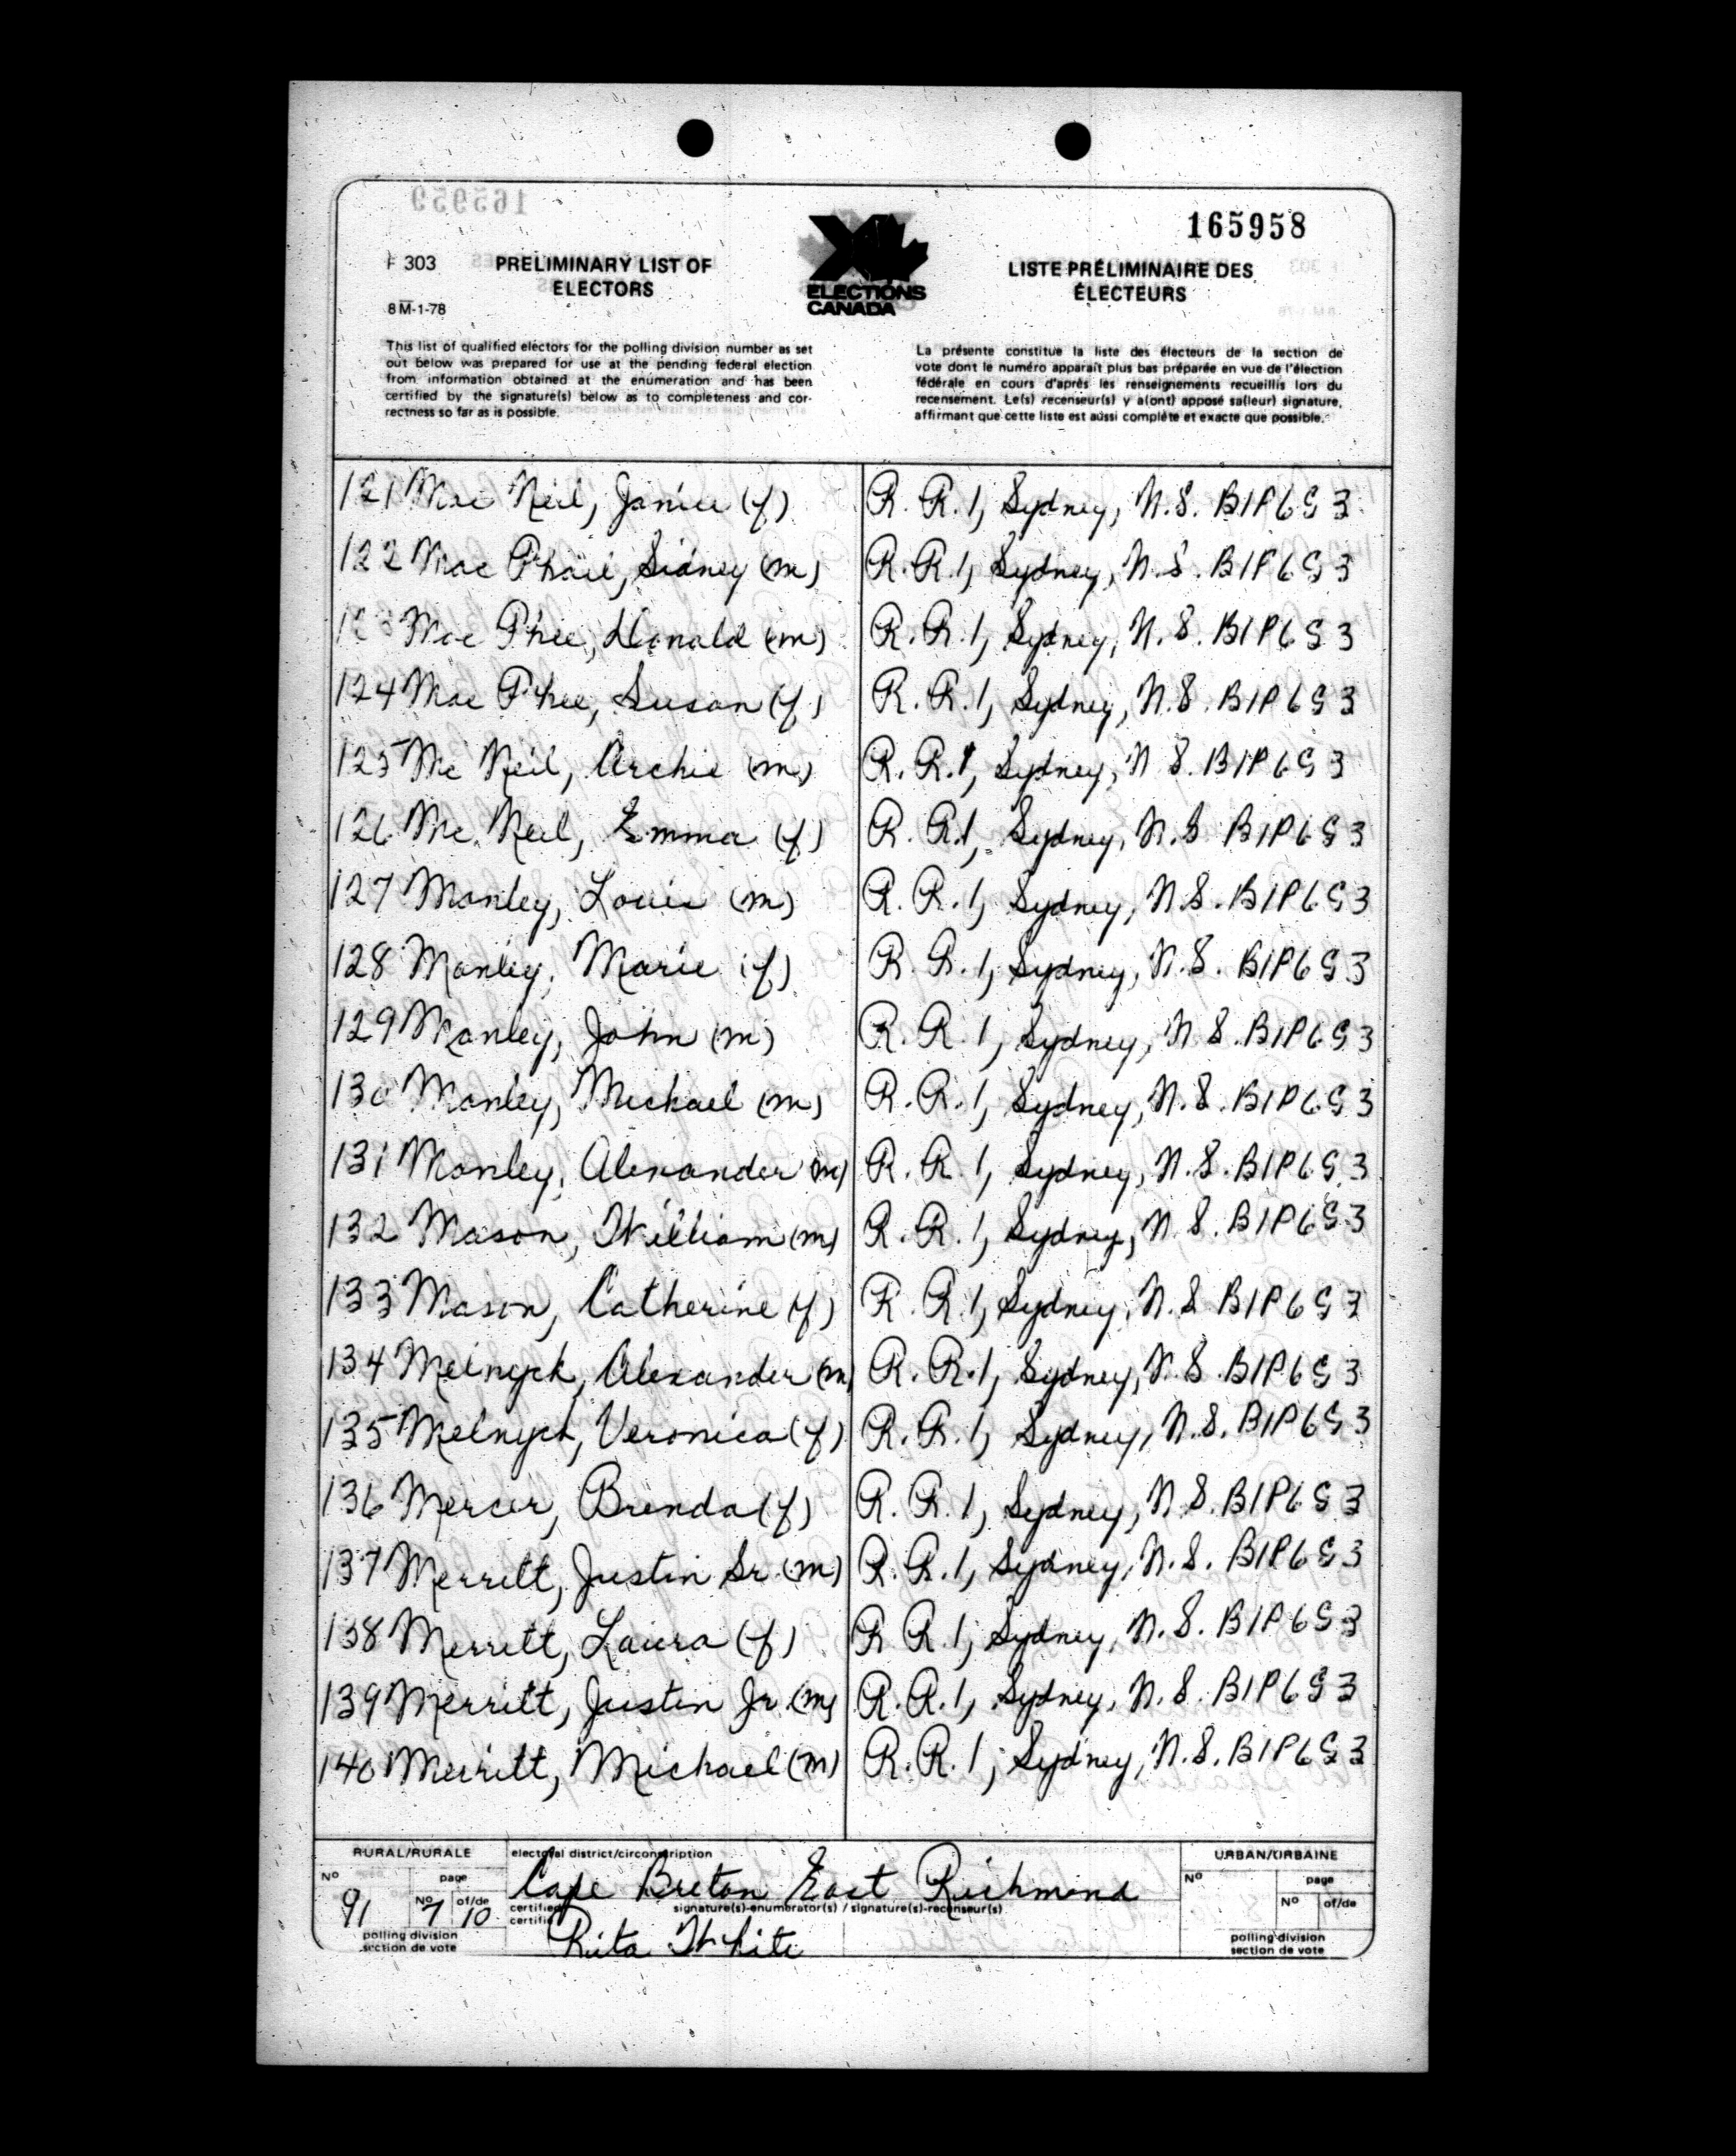 165958
F 303
PRELIMINARY LIST OF
ELECTORS
8 M-1-78
ELECTIONS
CANADA
LISTE PRÉLIMINAIRE DES
ÉLECTEURS
This list of qualified electors for the polling division number as set
out below was prepared for use at the pending federal election
from information obtained at the enumeration and has been
certified by the signature(s) below as to completeness and cor-
rectness so far as is possible.
La présente constitue la liste des électeurs de la section de
vote dont le numéro apparaît plus bas préparée en vue de l'élection
fédérale en cours d'après les renseignements recueillis lors du
recensement. Le(s) recenseur(s) y a(ont) apposé sa(leur) signature,
affirmant que cette liste est aussi complète et exacte que possible.
121 Mac Neil, Janice (f) R. R. 1, Sydney, N.S. B1P6G3
122 Mac Phail, Sidney (m) R. R. 1, Sydney, N.S. B1P6G3
123 Mac Phee, Donald (m) R. R. 1, Sydney, N.S. B1P6G3
124 Mac Phee, Susan (f) R. R. 1, Sydney, N.S. B1P6G3
125 Mc Neil, Archie (m) R. R. 1, Sydney, N.S. B1P6G3
126 Mc Neil, Emma (f) R. R. 1, Sydney, N.S. B1P6G3
127 Manley, Louis (m) R. R. 1, Sydney, N.S. B1P6G3
128 Manley, Marie (f) R. R. 1, Sydney, N.S. B1P6G3
129 Manley, John (m) R. R. 1, Sydney, N.S. B1P6G3
130 Manley, Michael (m) R. R. 1, Sydney, N.S. B1P6G3
131 Manley, Alexander (m) R. R. 1, Sydney, N.S. B1P6G3
132 Mason, William (m) R. R. 1, Sydney, N.S. B1P6G3
133 Mason, Catherine (f) R. R. 1, Sydney, N.S. B1P6G3
134 Melnyck, Alexander (m) R. R. 1, Sydney, N.S. B1P6G3
135 Melnyck, Veronica (f) R. R. 1, Sydney, N.S. B1P6G3
136 Mercer, Brenda (f) R. R. 1, Sydney, N.S. B1P6G3
137 Merritt, Justin Sr. (m) R. R. 1, Sydney, N.S. B1P6G3
138 Merritt, Laura (f) R. R. 1, Sydney, N.S. B1P6G3
139 Merritt, Justin Jr. (m) R. R. 1, Sydney, N.S. B1P6G3
140 Merritt, Michael (m) R. R. 1, Sydney, N.S. B1P6G3
RURAL/RURALE
No
91
page
No
7
of/de
10
polling division
section de vote
electoral district/circonscription
Cape Breton East Richmond
certified
certifié
signature(s)-enumerator(s) / signature(s)-recenseur(s)
Rita White
URBAN/URBAINE
No
page
No
of/de
polling division
section de vote